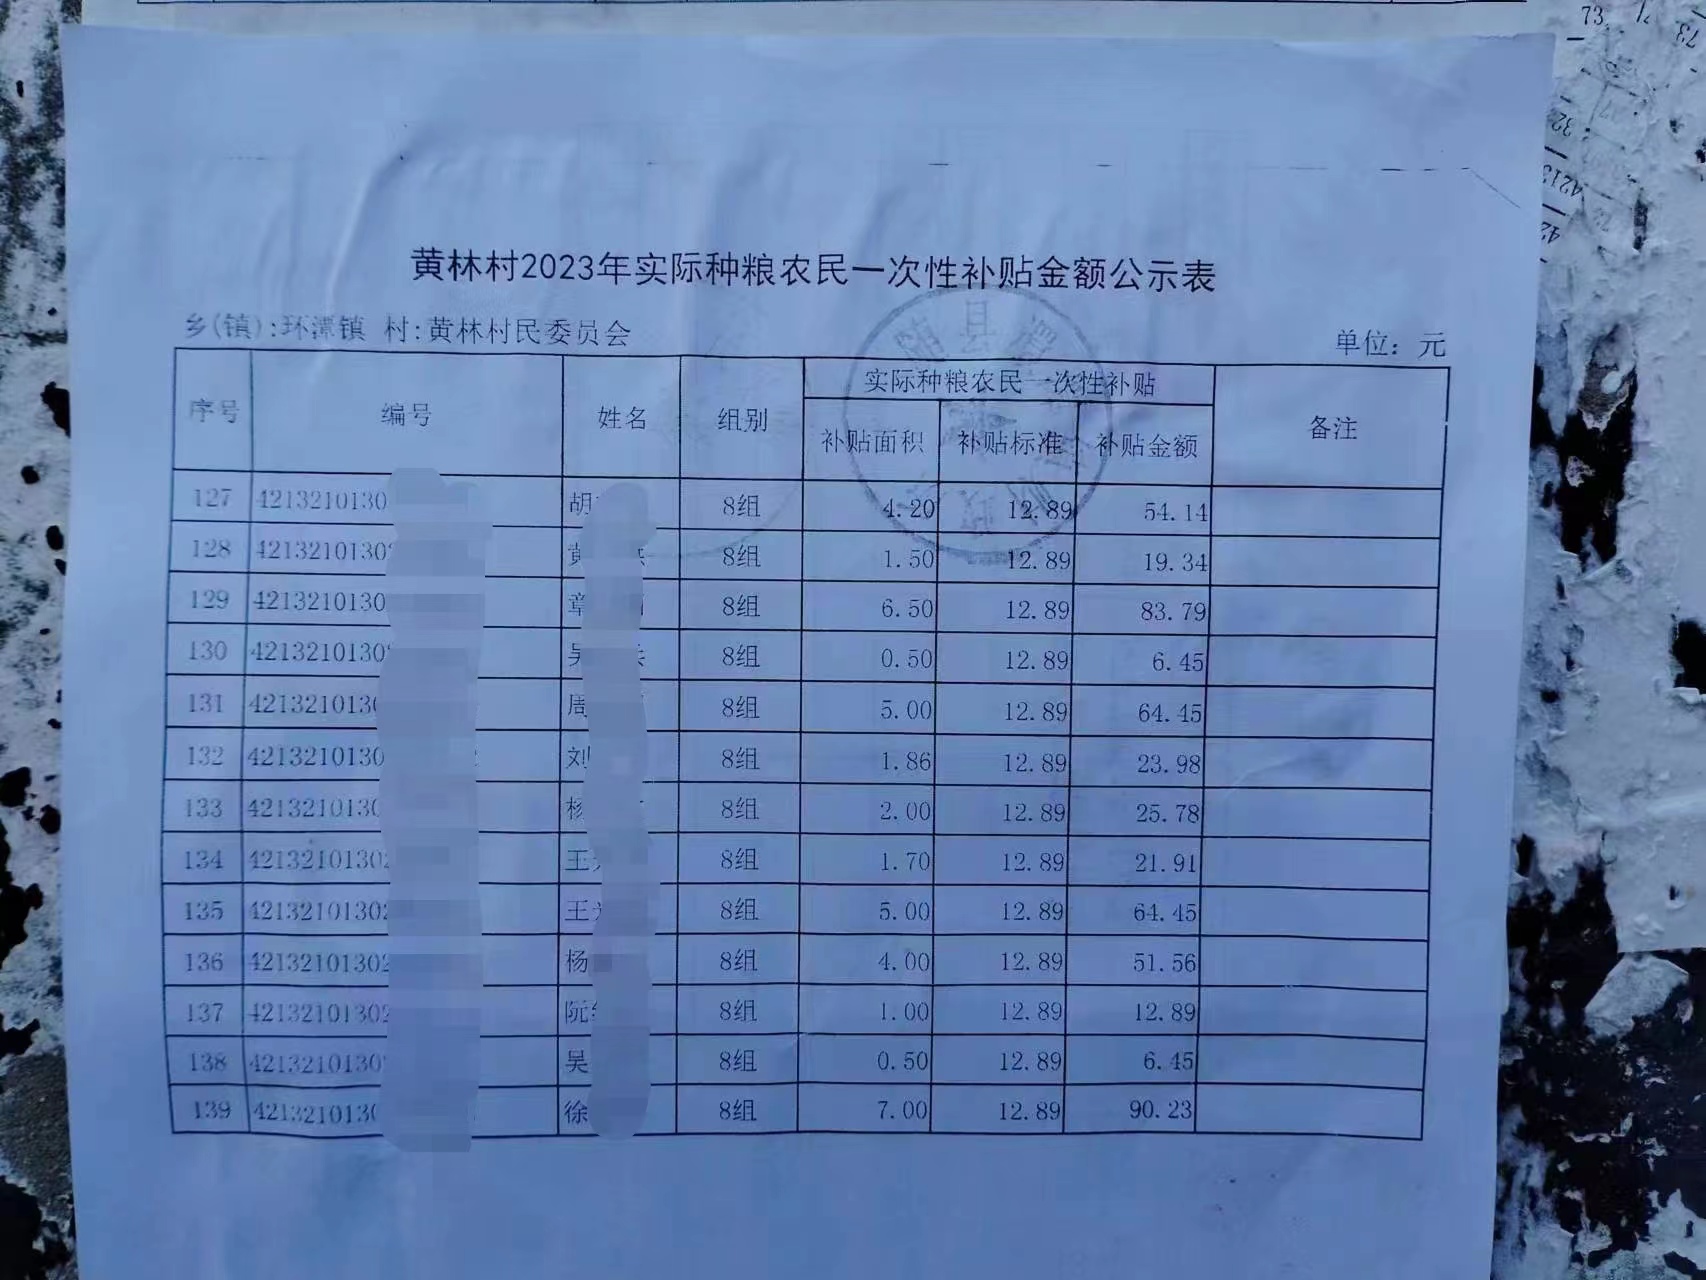 黄林村2023年实际种粮农民一次性补贴金额公示表
乡(镇):环潭镇 村:黄林村民委员会 单位：元
序号 编号 姓名 组别 实际种粮农民一次性补贴 备注
补贴面积 补贴标准 补贴金额
127 4213210130 胡 8组 4.20 12.89 54.14
128 42132101302 黄 8组 1.50 12.89 19.34
129 4213210130 章 8组 6.50 12.89 83.79
130 4213210130 吴 8组 0.50 12.89 6.45
131 4213210130 周 8组 5.00 12.89 64.45
132 4213210130 刘 8组 1.86 12.89 23.98
133 4213210130 杨 8组 2.00 12.89 25.78
134 42132101302 王 8组 1.70 12.89 21.91
135 42132101302 王 8组 5.00 12.89 64.45
136 42132101302 杨 8组 4.00 12.89 51.56
137 42132101302 阮 8组 1.00 12.89 12.89
138 4213210130 吴 8组 0.50 12.89 6.45
139 4213210130 徐 8组 7.00 12.89 90.23